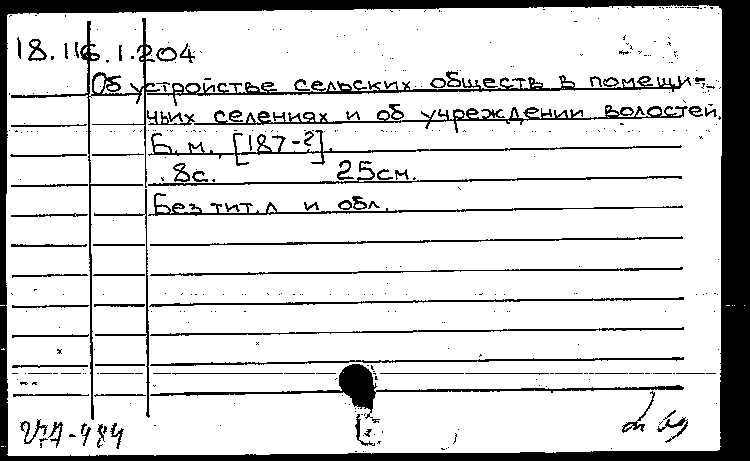 18.116.1.204
Об устройстве сельских обществ в помещи-
чьих селениях и об учреждении волостей.
Б. м., [187-?].
8с. 25см.
Без тит. л и обл.